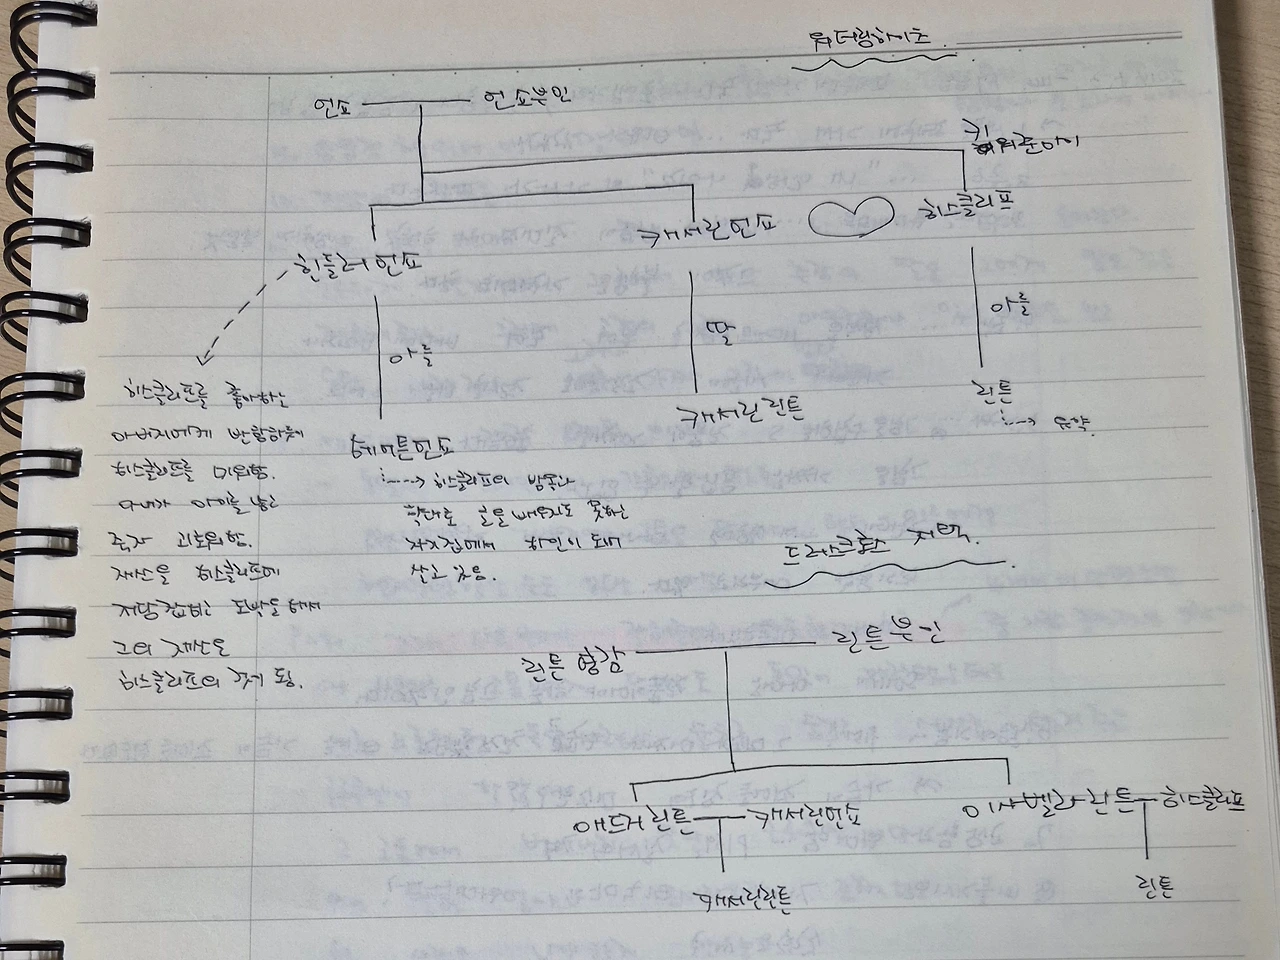 워더링하이츠.
언쇼 언쇼부인
키워준아이
히스클리프
캐서린언쇼
힌들러언쇼
아들
딸
아들
히스클리프를 좋아하는
아버지에게 반항하듯이
히스클리프를 미워함.
아내가 아이를 낳고
죽자 괴로워함.
재산을 히스클리프에
저당잡히는 도박을 해서
그의 재산은
히스클리프의 것이 됨.
헤어튼언쇼
히스클리프의 방종과
학대로 글을 배우지도 못하고
자기집에서 하인이 되어
살고 있음.
캐서린린튼
린튼
병약.
드러스크로스 저택.
린튼 영감 린튼부인
애드거린튼 캐서린언쇼
이사벨라린튼 히스클리프
캐서린린튼
린튼